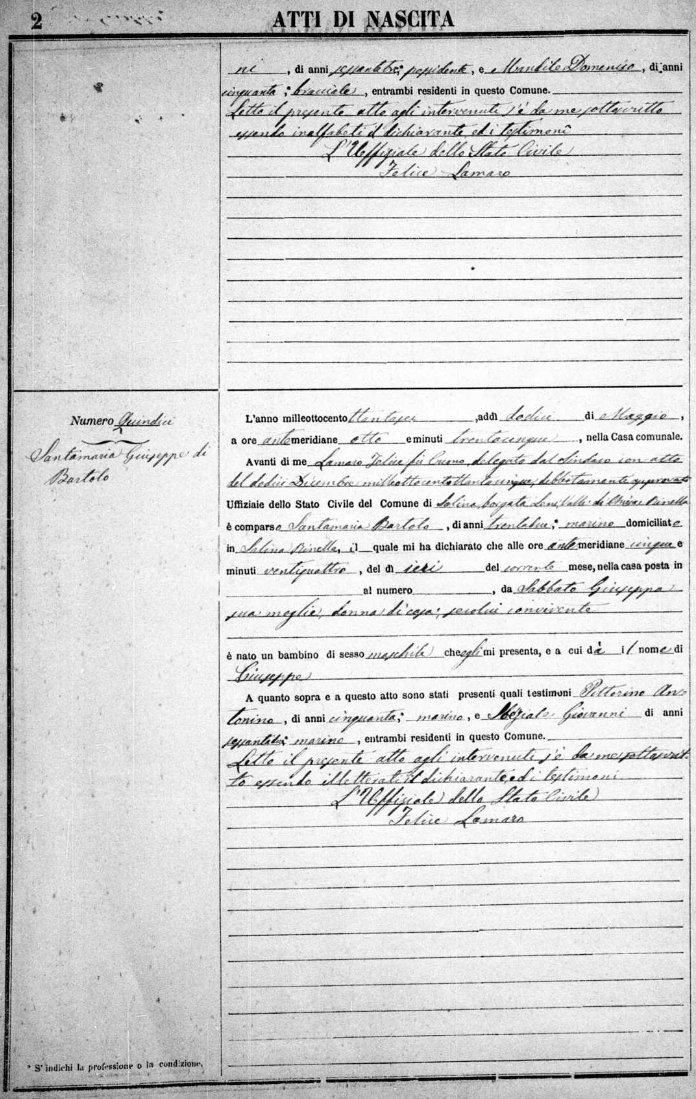 2 ATTI DI NASCITA
ni, di anni sessantatre; possidente, e Mandile Domenico, di anni
cinquanta; bracciale, entrambi residenti in questo Comune.
Letto il presente atto agli intervenuti s'è da me sottoscritto
essendo inalfabeti il dichiarante ed i testimoni
L'Uffiziale dello Stato Civile
Felice Lamaro
Numero Quindici
Santamaria Giuseppe di
Bartolo
L'anno milleottocento ttantasei, addì dodici di Maggio,
a ore antemeridiane otto e minuti trentacinque, nella Casa comunale.
Avanti di me Lamaro Felice fu Cuono, delegato dal Sindaco con atto
del dodici Dicembre milleottocentottantacinque, debitamente approvato
Uffiziale dello Stato Civile del Comune di Salina, borgata Leni, Valle di Chiesa Rinella
è comparso Santamaria Bartolo, di anni trentadue; marino domiciliato
in Salina Rinella, il quale mi ha dichiarato che alle ore antemeridiane cinque e
minuti ventiquattro, del dì ieri del corrente mese, nella casa posta in
al numero, da Sabbato Giuseppa
sua moglie, donna di casa, secolui convivente
è nato un bambino di sesso maschile che egli mi presenta, e a cui dà il nome di
Giuseppe
A quanto sopra e a questo atto sono stati presenti quali testimoni Pittorino An-
tonino, di anni cinquanta; marino, e Giovanni di anni
marino, entrambi residenti in questo Comune.
Letto il presente atto agli intervenuti s'è da me sottoscrit-
to essendo illetterati il dichiarante ed i testimoni
L'Uffiziale dello Stato Civile
Felice Lamaro
* S'indichi la professione o la condizione.